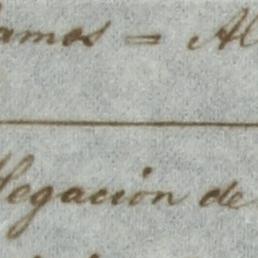 amos = Al
legación de